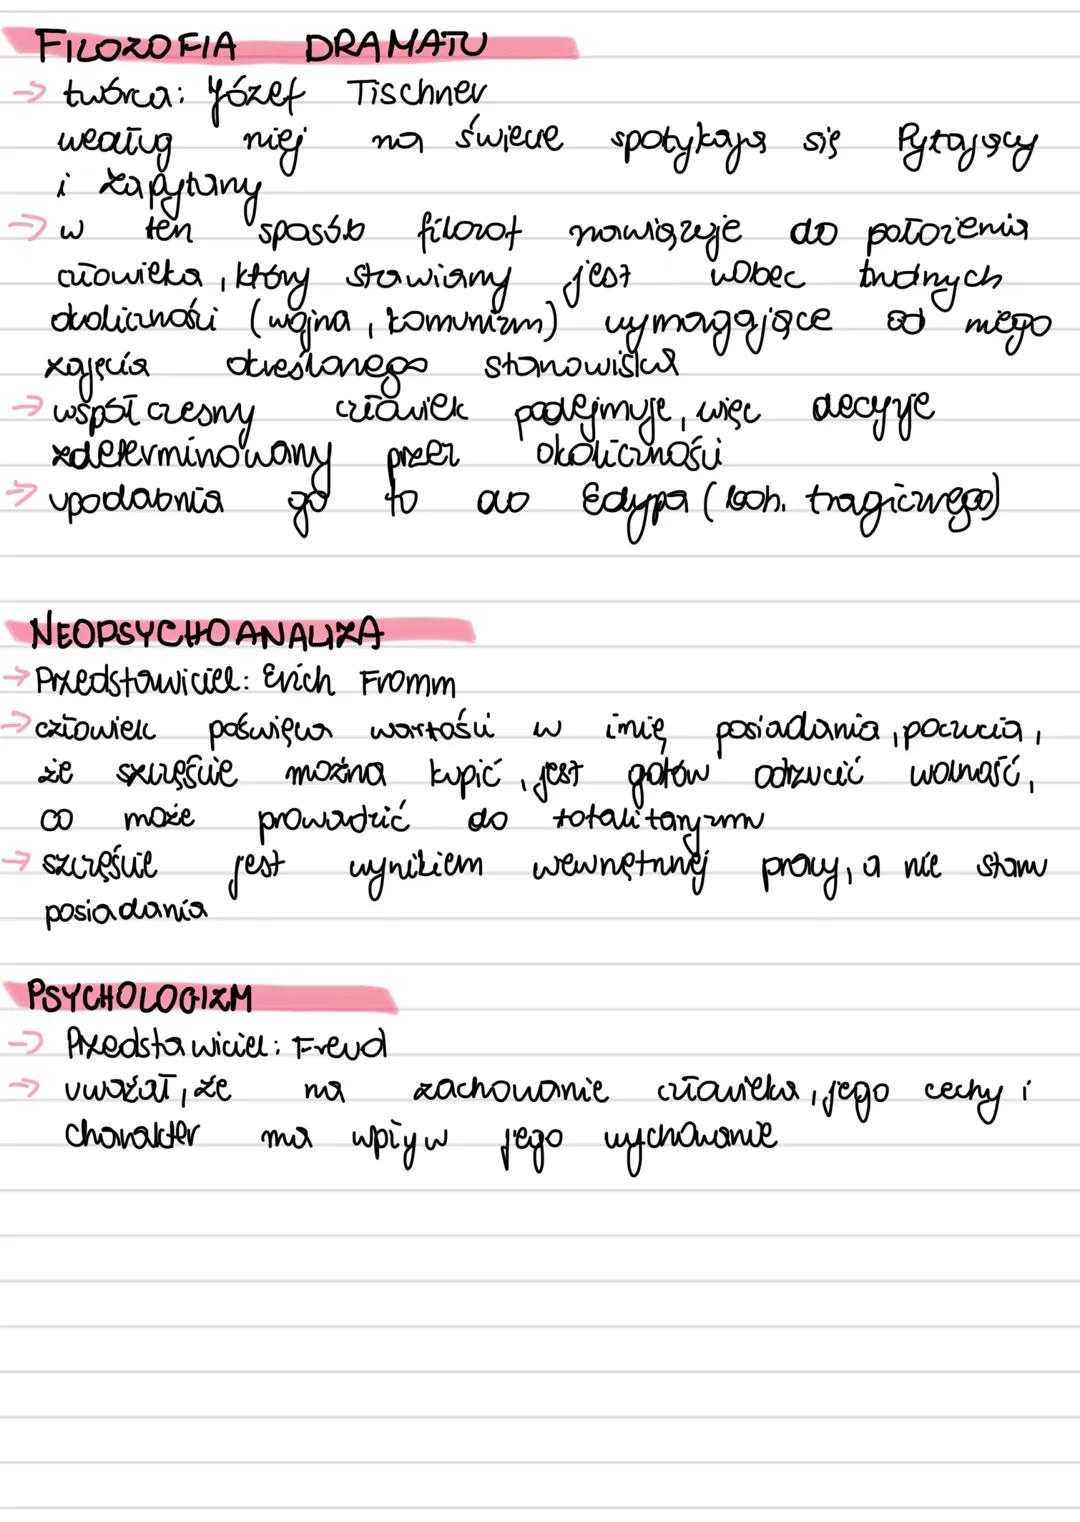 FILOZOFIA DRAMATU
→ twórca: Józef Tischner
według niej na świecie spotykają się Pytający
i zapytany
→ w ten sposób filozof nawiązuje do położenia
człowieka, który stawiany jest wobec trudnych
okoliczności (wojna, komunizm) wymagające od niego
zajęcia określonego stanowiska
→ współczesny człowiek podejmuje, więc decyzje
zdeterminowany przez okoliczności
→ upodabnia go to do Edypa (boh. tragicznego)
NEOPSYCHOANALIZA
→ Przedstawiciel: Erich Fromm
→ człowiek poświęca wartości w imię posiadania, poczucia,
że szczęście można kupić, jest gotów odrzucić wolność,
co może prowadzić do totalitaryzmu
→ szczęście jest wynikiem wewnętrznej pracy, a nie stanu
posiadania
PSYCHOLOGIZM
→ Przedstawiciel: Freud
→ uważał, że na zachowanie człowieka, jego cechy i
charakter ma wpływ jego wychowanie